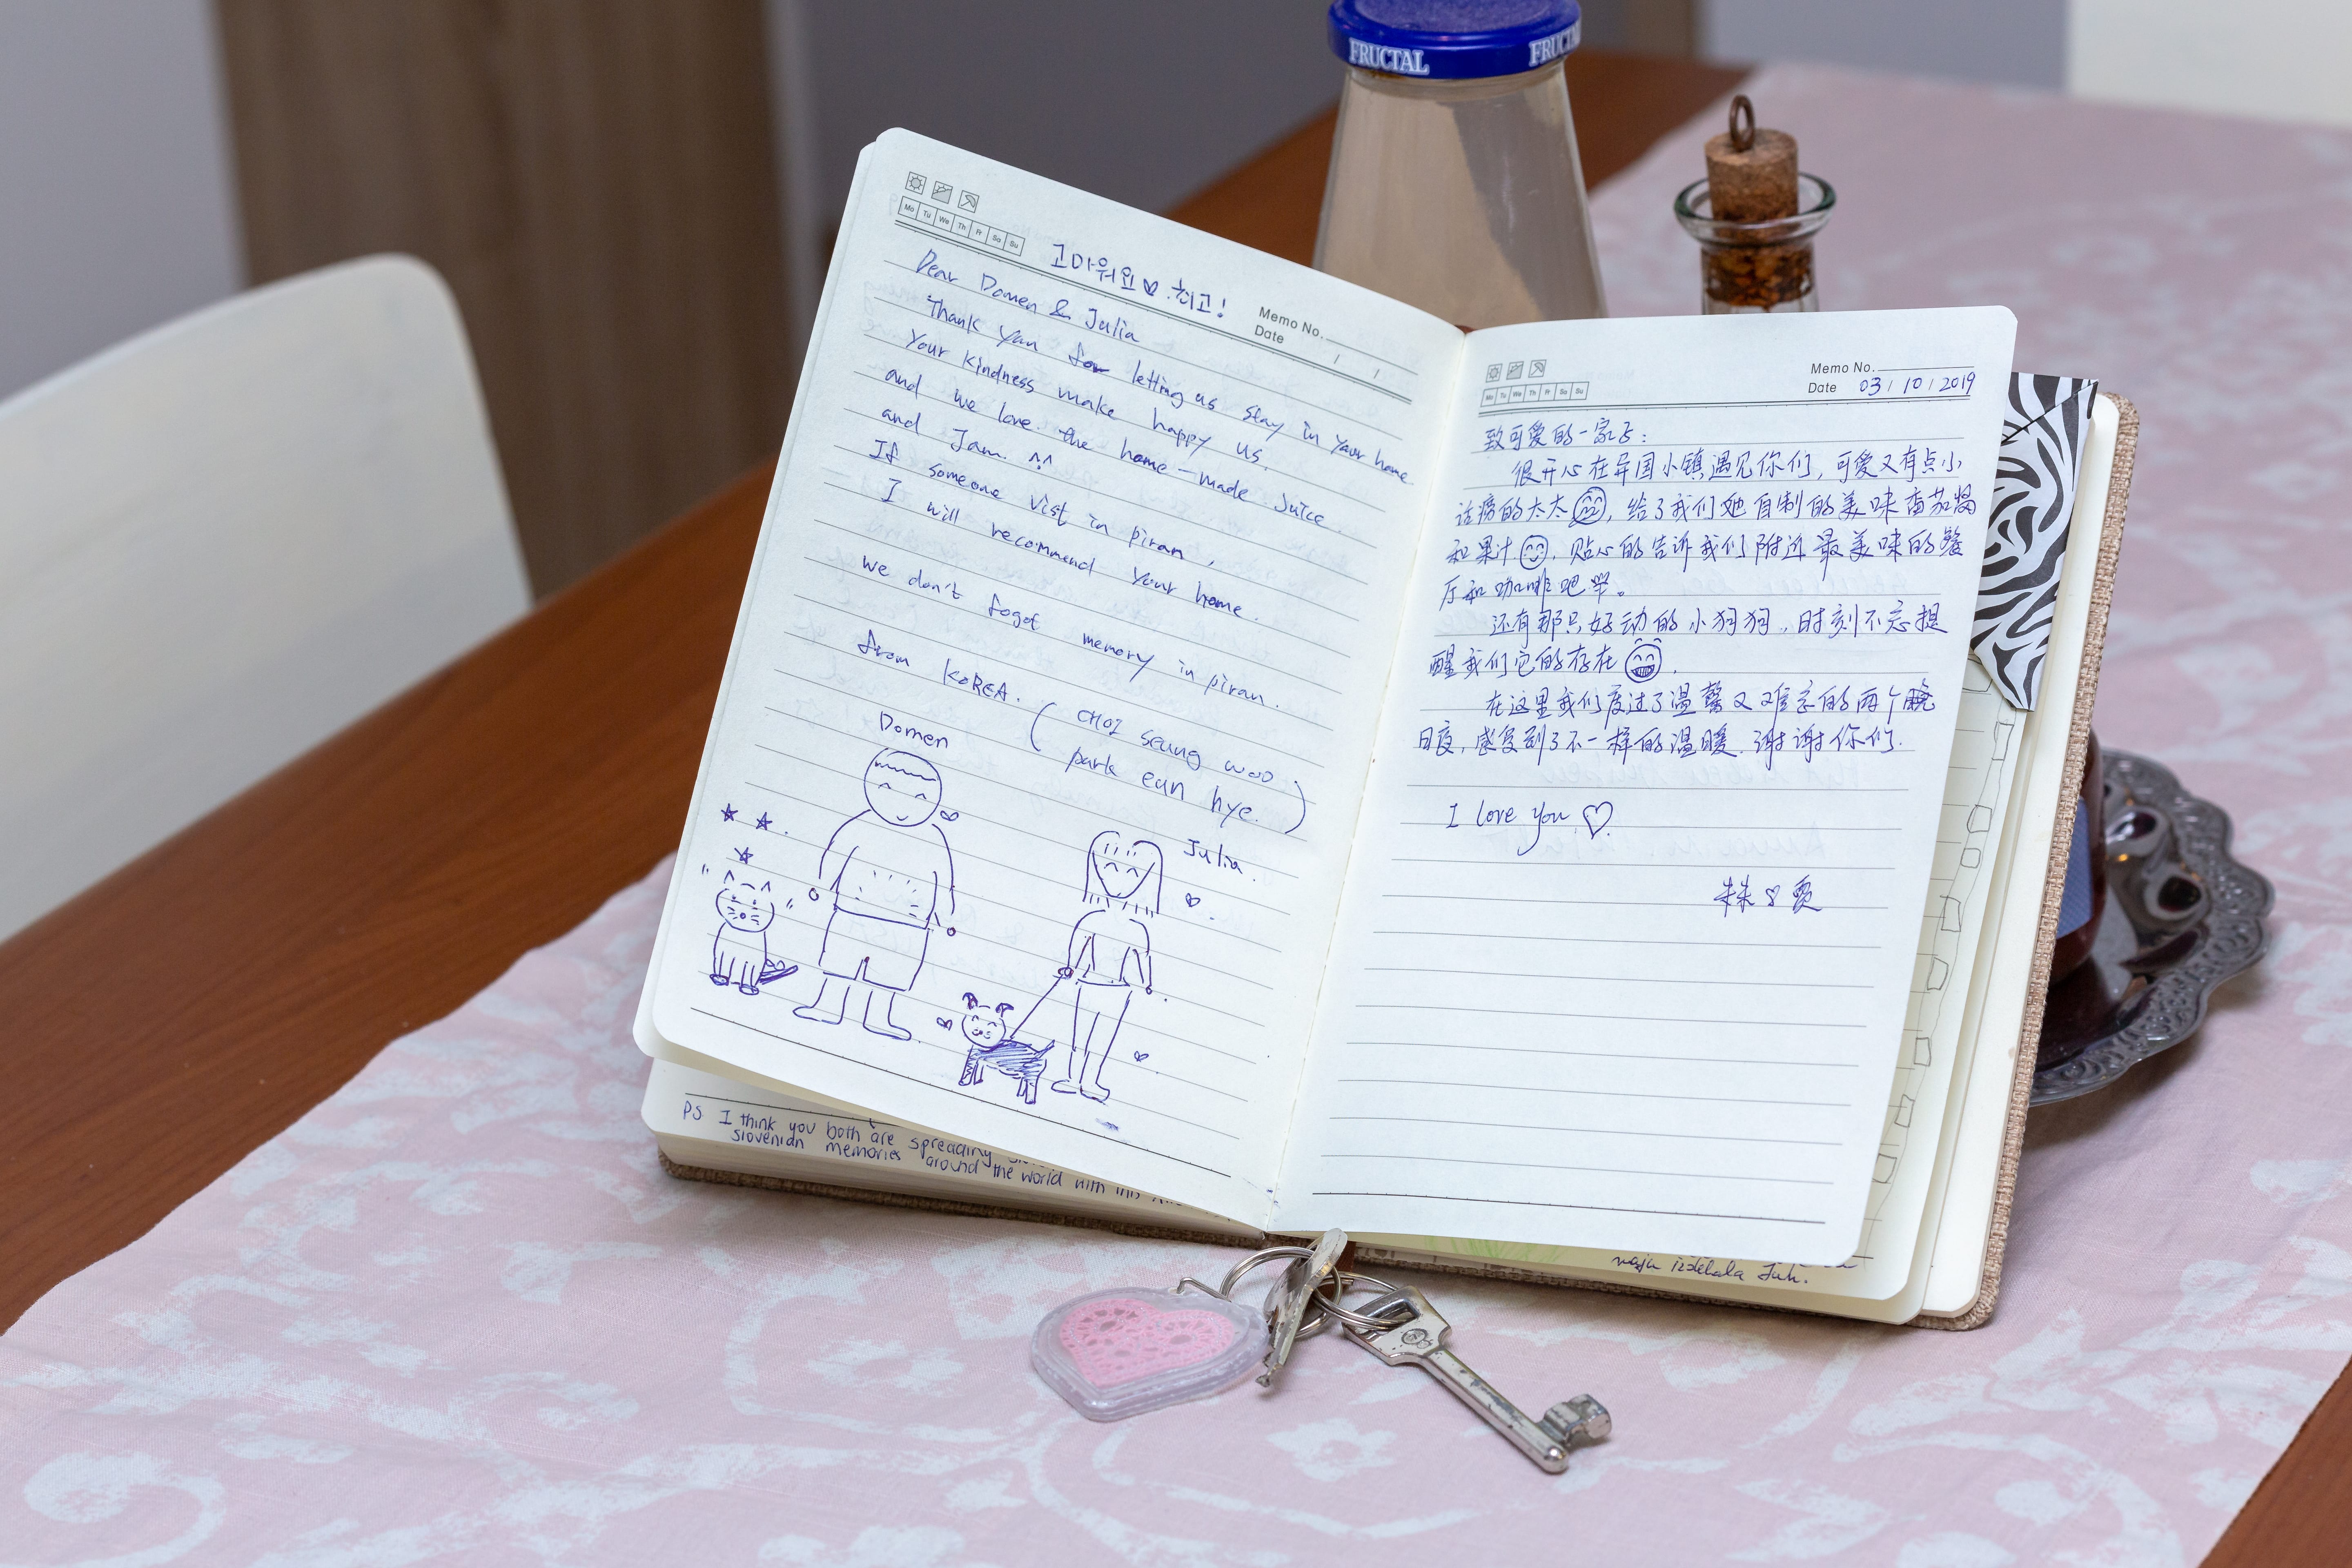 FRUCTAL FRUCTAL
Mo Tu We Th Fr Sa Su
고마워요♡.최고!
Memo No.
Date / /
Dear Domen & Julia
Thank you for letting us stay in your home
Your kindness make happy us.
and we love the home-made Juice
and Jam. ^^
If someone vist in piran,
I will recommend your home.
we don't fogot memory in piran.
from KOREA. (CHOI seung woo
park eun hye.)
Domen
Julia.
PS I think you both are spreading
slovenian memories around the world with this
Memo No.
Mo Tu We Th Fr Sa Su
Date 03/10/2019
致可爱的一家子:
很开心在异国小镇遇见你们,可爱又有点小
话痨的太太,给了我们她自制的美味番茄酱
和果汁,贴心的告诉我们附近最美味的餐
厅和咖啡吧等。
还有那只好动的小狗狗,时刻不忘提
醒我们它的存在.
在这里我们度过了温馨又难忘的两个晚
日夜,感受到了不一样的温暖.谢谢你们.
I love you ♡.